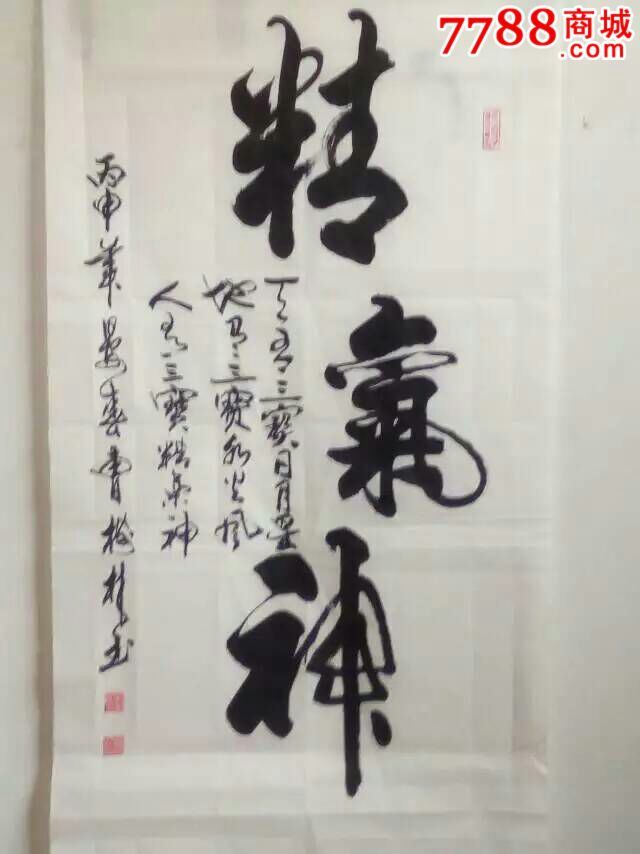 7788商城
.com
精氣神
天有三寶日月星
地有三寶水火風
人有三寶精氣神
丙申年暮春曹